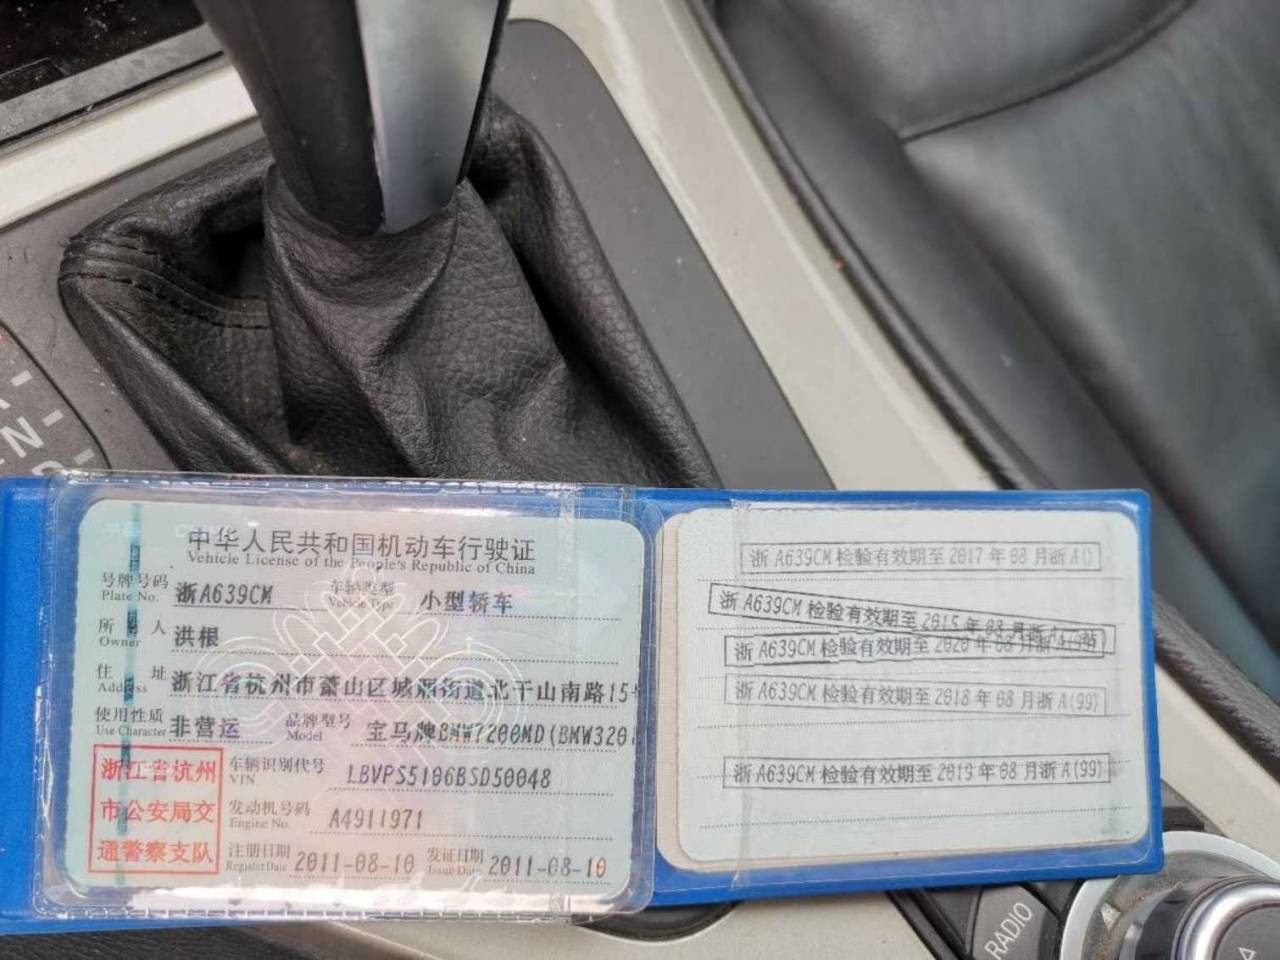 中华人民共和国机动车行驶证
Vehicle License of the People's Republic of China
号牌号码 浙A639CM 车辆类型 小型轿车
Plate No. Vehicle Type
所有人 洪根
Owner
住址 浙江省杭州市萧山区城厢街道北干山南路15
Address
使用性质 非营运 品牌型号 宝马牌BMW7200MD(BMW320
Use Character Model
浙江省杭州
市公安局交
通警察支队
车辆识别代号 LBVPS5106BSD50048
VIN
发动机号码 A4911971
Engine No.
注册日期 2011-08-10 发证日期 2011-08-10
Register Date Issue Date
浙A639CM检验有效期至2017年08月浙A()
浙A639CM检验有效期至2015年08月浙A(99)
浙A639CM检验有效期至2020年08月浙A(99)
浙A639CM检验有效期至2018年08月浙A(99)
浙A639CM检验有效期至2019年08月浙A(99)
N
RADIO